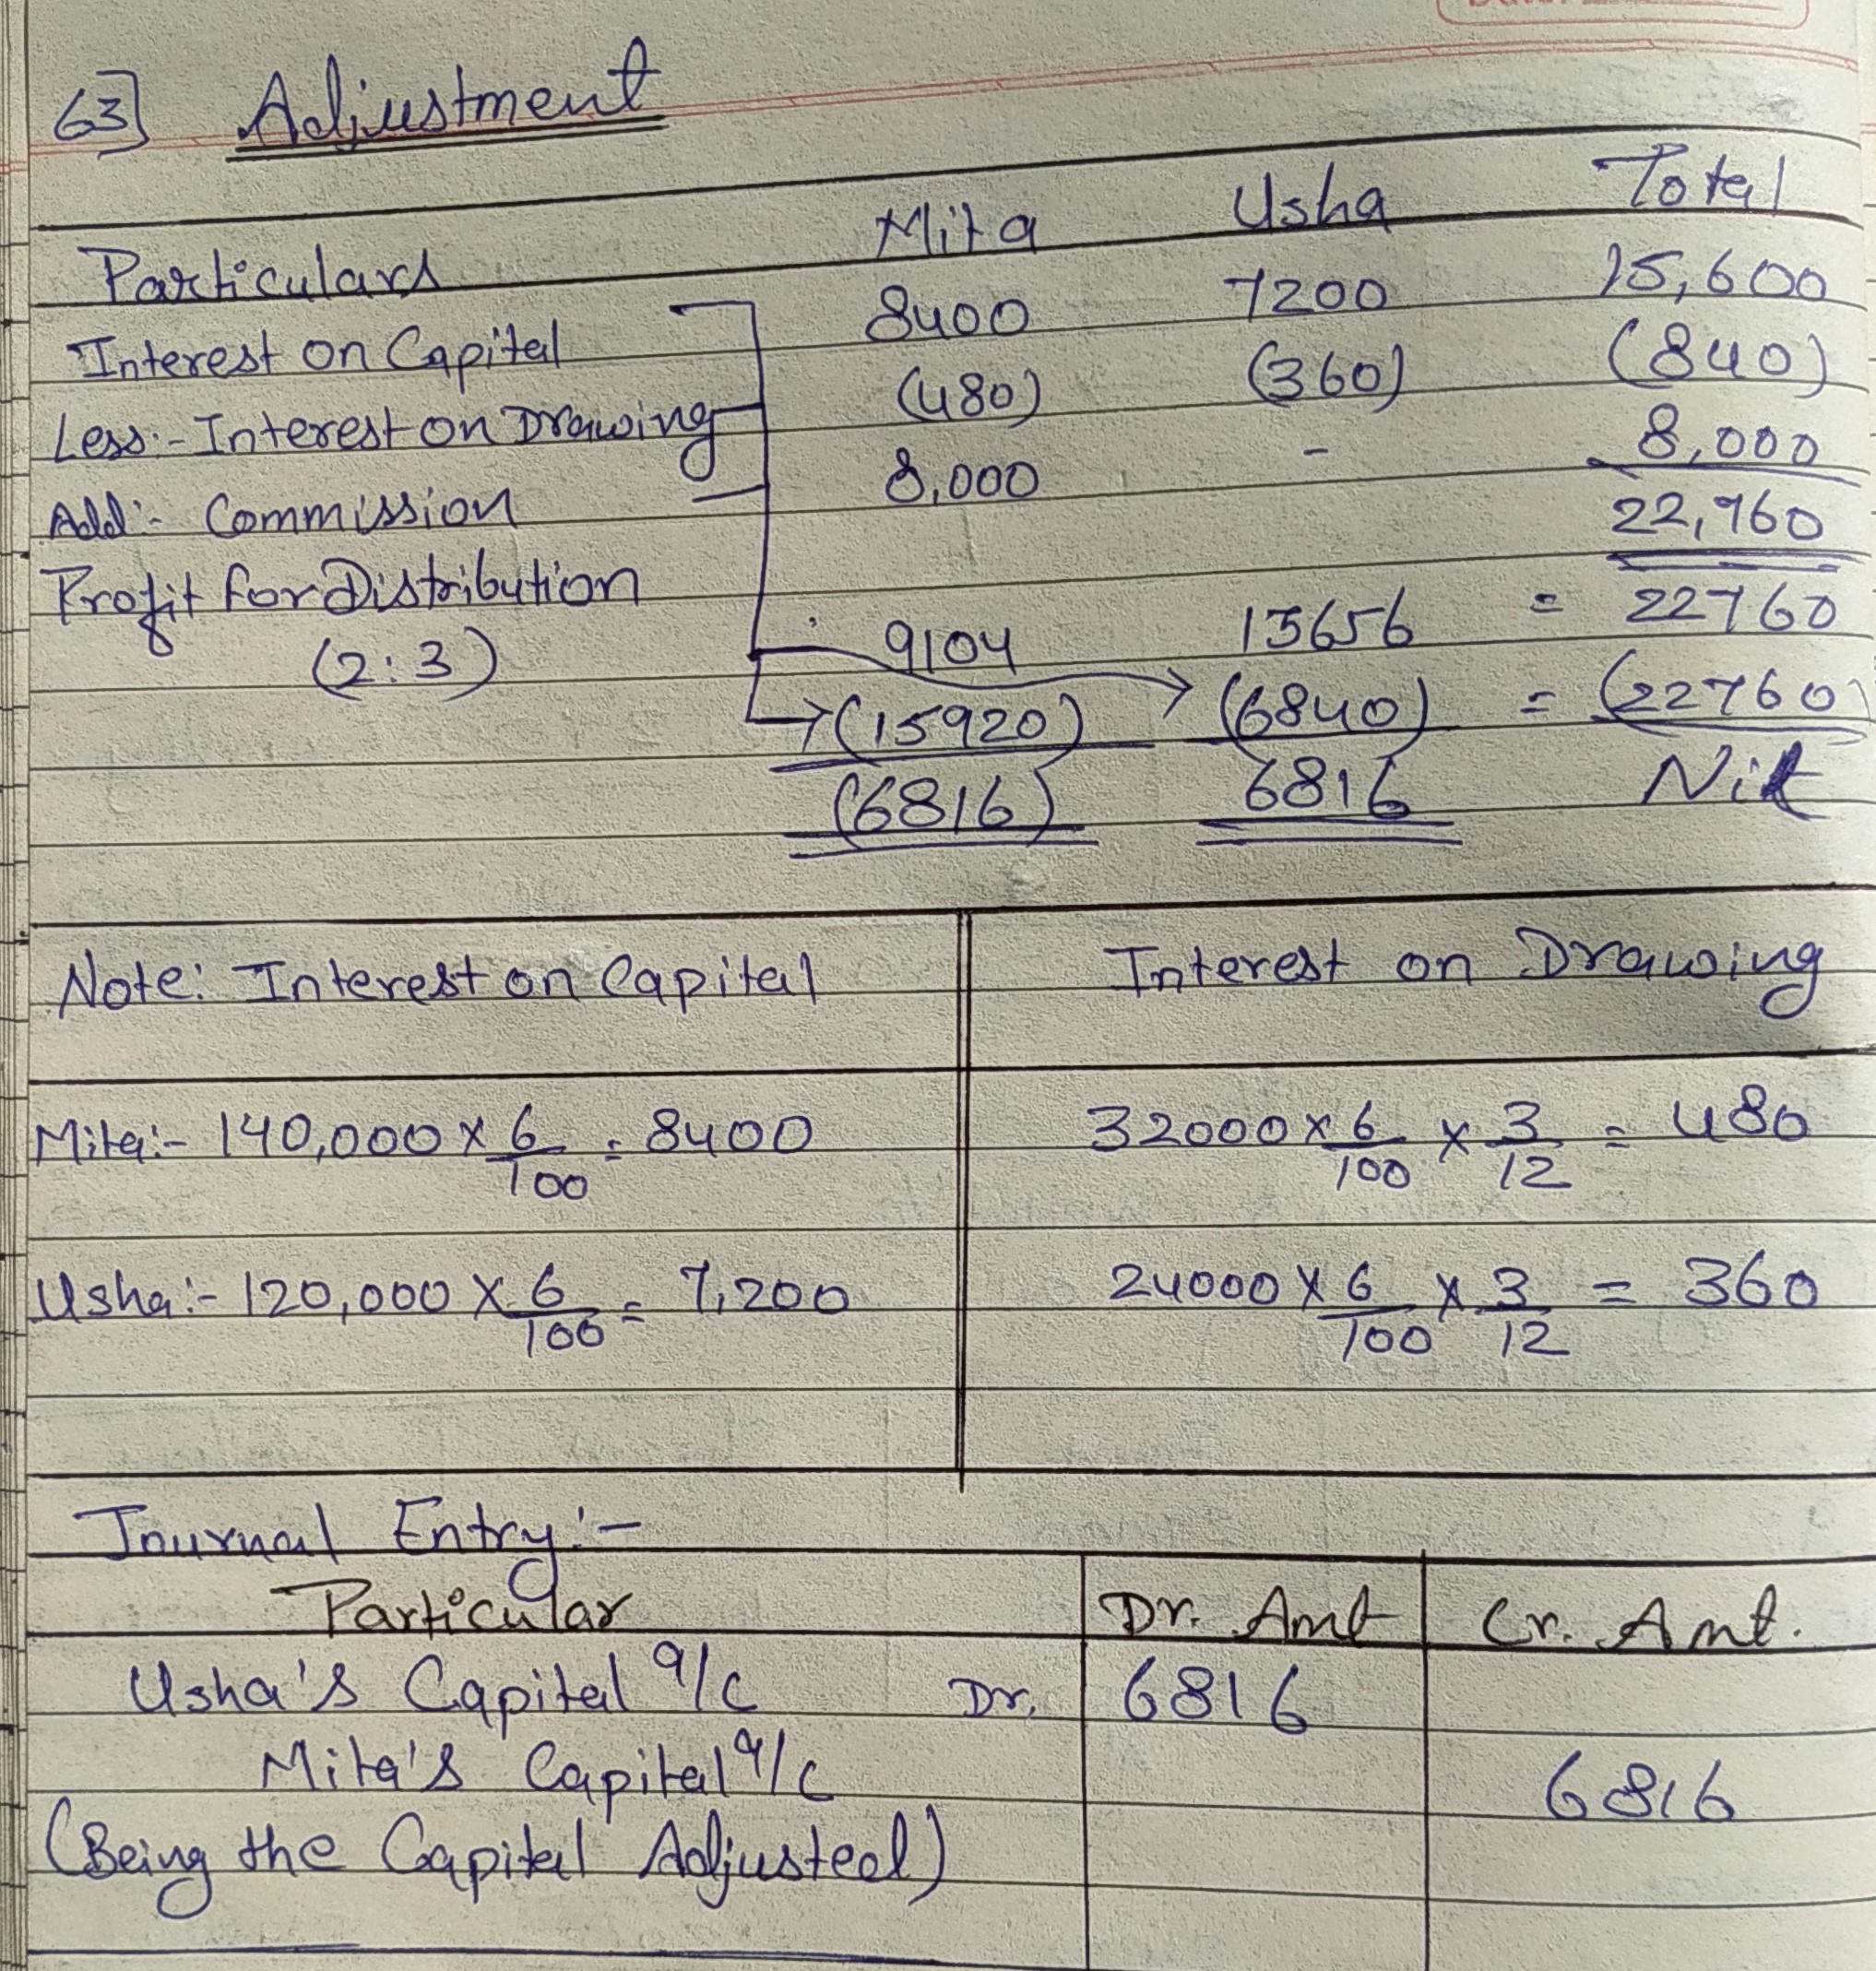 63] Adjustment
Particulars Mita Usha Total
Interest on Capital 8400 7200 15,600
Less:- Interest on Drawing (480) (360) (840)
Add:- Commission 8,000 - 8,000
22,760
Profit for Distribution
(2:3) 9104 13656 = 22760
(15920) (6840) = (22760)
(6816) 6816 Nil
Note: Interest on Capital Interest on Drawing
Mita:- 140,000 x 6/100 = 8400 32000 x 6/100 x 3/12 = 480
Usha:- 120,000 x 6/100 = 7,200 24000 x 6/100 x 3/12 = 360
Journal Entry:-
Particular Dr. Amt Cr. Amt.
Usha's Capital a/c Dr. 6816
Mita's Capital a/c 6816
(Being the Capital Adjusted)